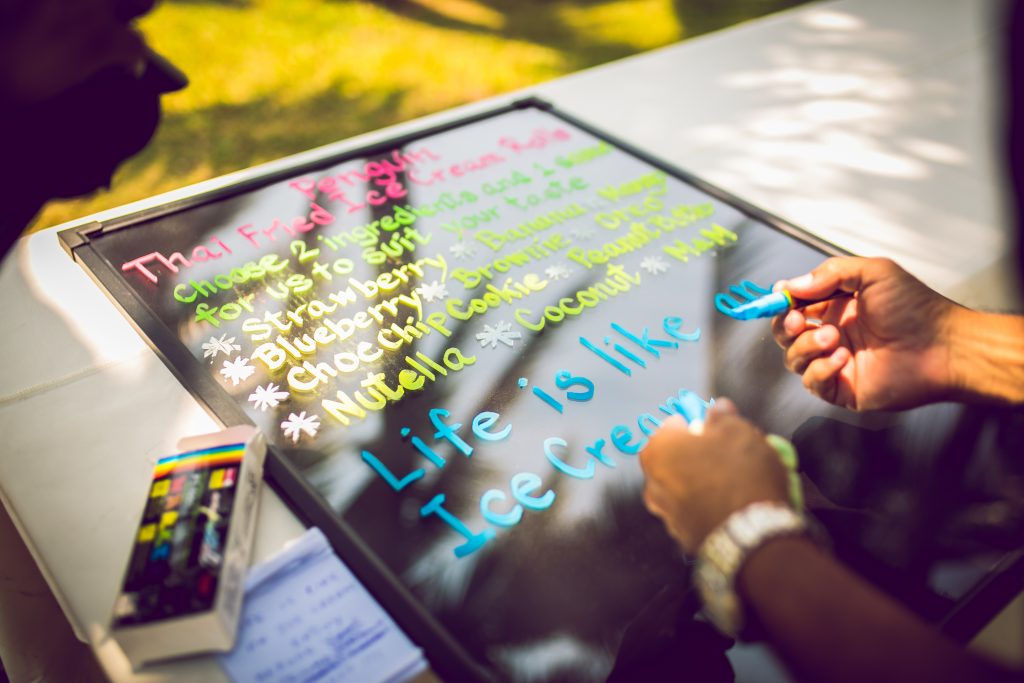 Penguin
Thai Fried Ice Cream Rolls
choose 2 ingredients and 1
for us to suit your taste
Strawberry Banana Honey
Blueberry Brownie Oreo
Choc Chip Cookie Peanut Butter
Nutella Coconut M&M
Life is like
Ice Cream